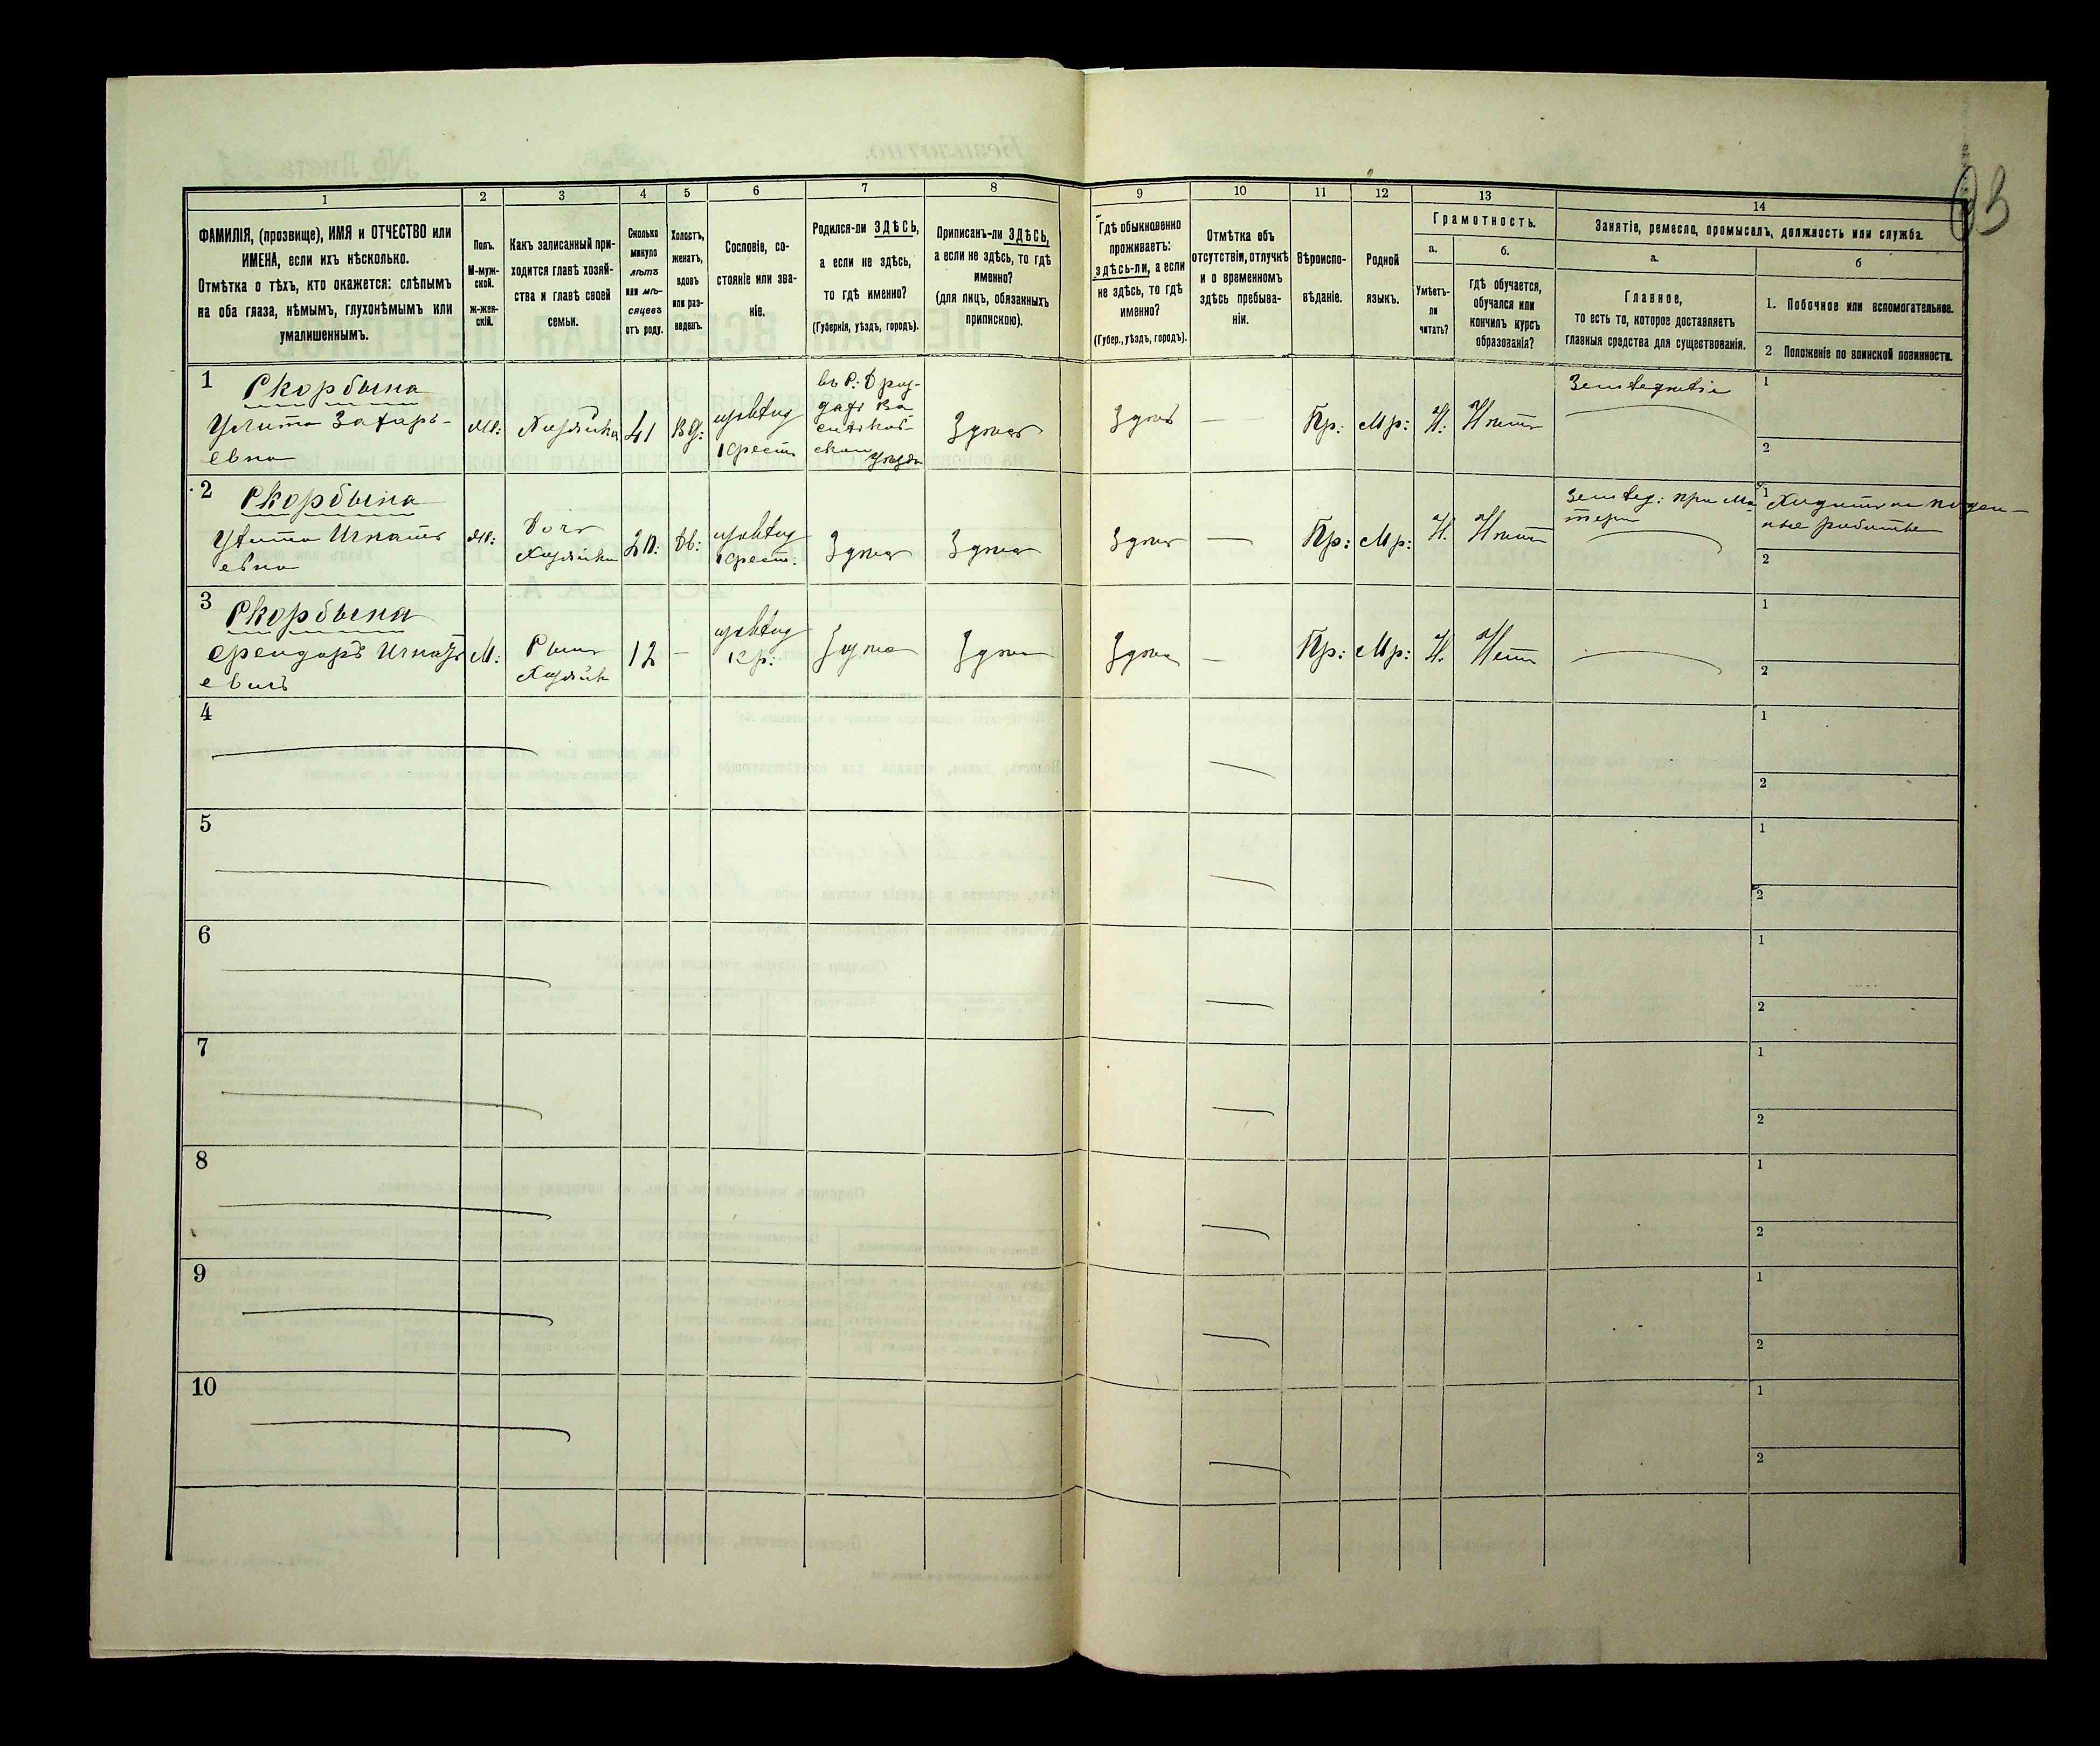 1 2 3 4 5 6 7 8 9 10 11 12 13 14
ФАМИЛІЯ, (прозвище), ИМЯ и ОТЧЕСТВО или
ИМЕНА, если ихъ нѣсколько.
Отмѣтка о тѣхъ, кто окажется: слѣпымъ
на оба глаза, нѣмымъ, глухонѣмымъ или
умалишеннымъ.
Полъ.
М-муж-
ской.
Ж-жен-
скій.
Какъ записанный при-
ходится главѣ хозяй-
ства и главѣ своей
семьи.
Сколько
минуло
лѣтъ
или мѣ-
сяцевъ
отъ роду.
Холостъ,
женатъ,
вдовъ
или раз-
веденъ.
Сословіе, со-
стояніе или зва-
ніе.
Родился-ли ЗДѢСЬ,
а если не здѣсь,
то гдѣ именно?
(Губернія, уѣздъ, городъ).
Приписанъ-ли ЗДѢСЬ,
а если не здѣсь, то гдѣ
именно?
(для лицъ, обязанныхъ
припискою).
Гдѣ обыкновенно
проживаетъ:
здѣсь-ли, а если
не здѣсь, то гдѣ
именно?
(Губер., уѣздъ, городъ).
Отмѣтка объ
отсутствіи, отлучкѣ
и о временномъ
здѣсь пребыва-
ніи.
Вѣроиспо-
вѣданіе.
Родной
языкъ.
Грамотность.
а.
Умѣетъ-
ли
читать?
б.
гдѣ обучается,
обучался или
кончилъ курсъ
образованія?
Занятіе, ремесло, промыселъ, должность или служба.
а.
Главное,
то есть то, которое доставляетъ
главныя средства для существованія.
б
1. Побочное или вспомогательное.
2 Положеніе по воинской повинности.
1
Скорбына
Захарь-
евна
Хозяйка
41
Вд:
Крест
Здѣсь
Здѣсь
—
Пр:
Мр:
Н:
Нѣтъ
Земледѣліе
1
2
2
Скорбына
Игнать
евна
Дочь
Хозяйки
20:
Дв:
Крест:
Здѣсь
Здѣсь
Здѣсь
—
Пр:
Мр:
Н:
Нѣтъ
Землед: при Ма
тери
1 Ходитъ на поден-
ные работы
2
3
Скорбына
Игнать
евичъ
М:
Сынъ
Хозяйк
12
—
Кр:
Здѣсь
Здѣсь
Здѣсь
—
Пр:
Мр:
Н:
Нѣтъ
1
2
4
1
2
5
1
2
6
1
2
7
1
2
8
1
2
9
1
2
10
1
2